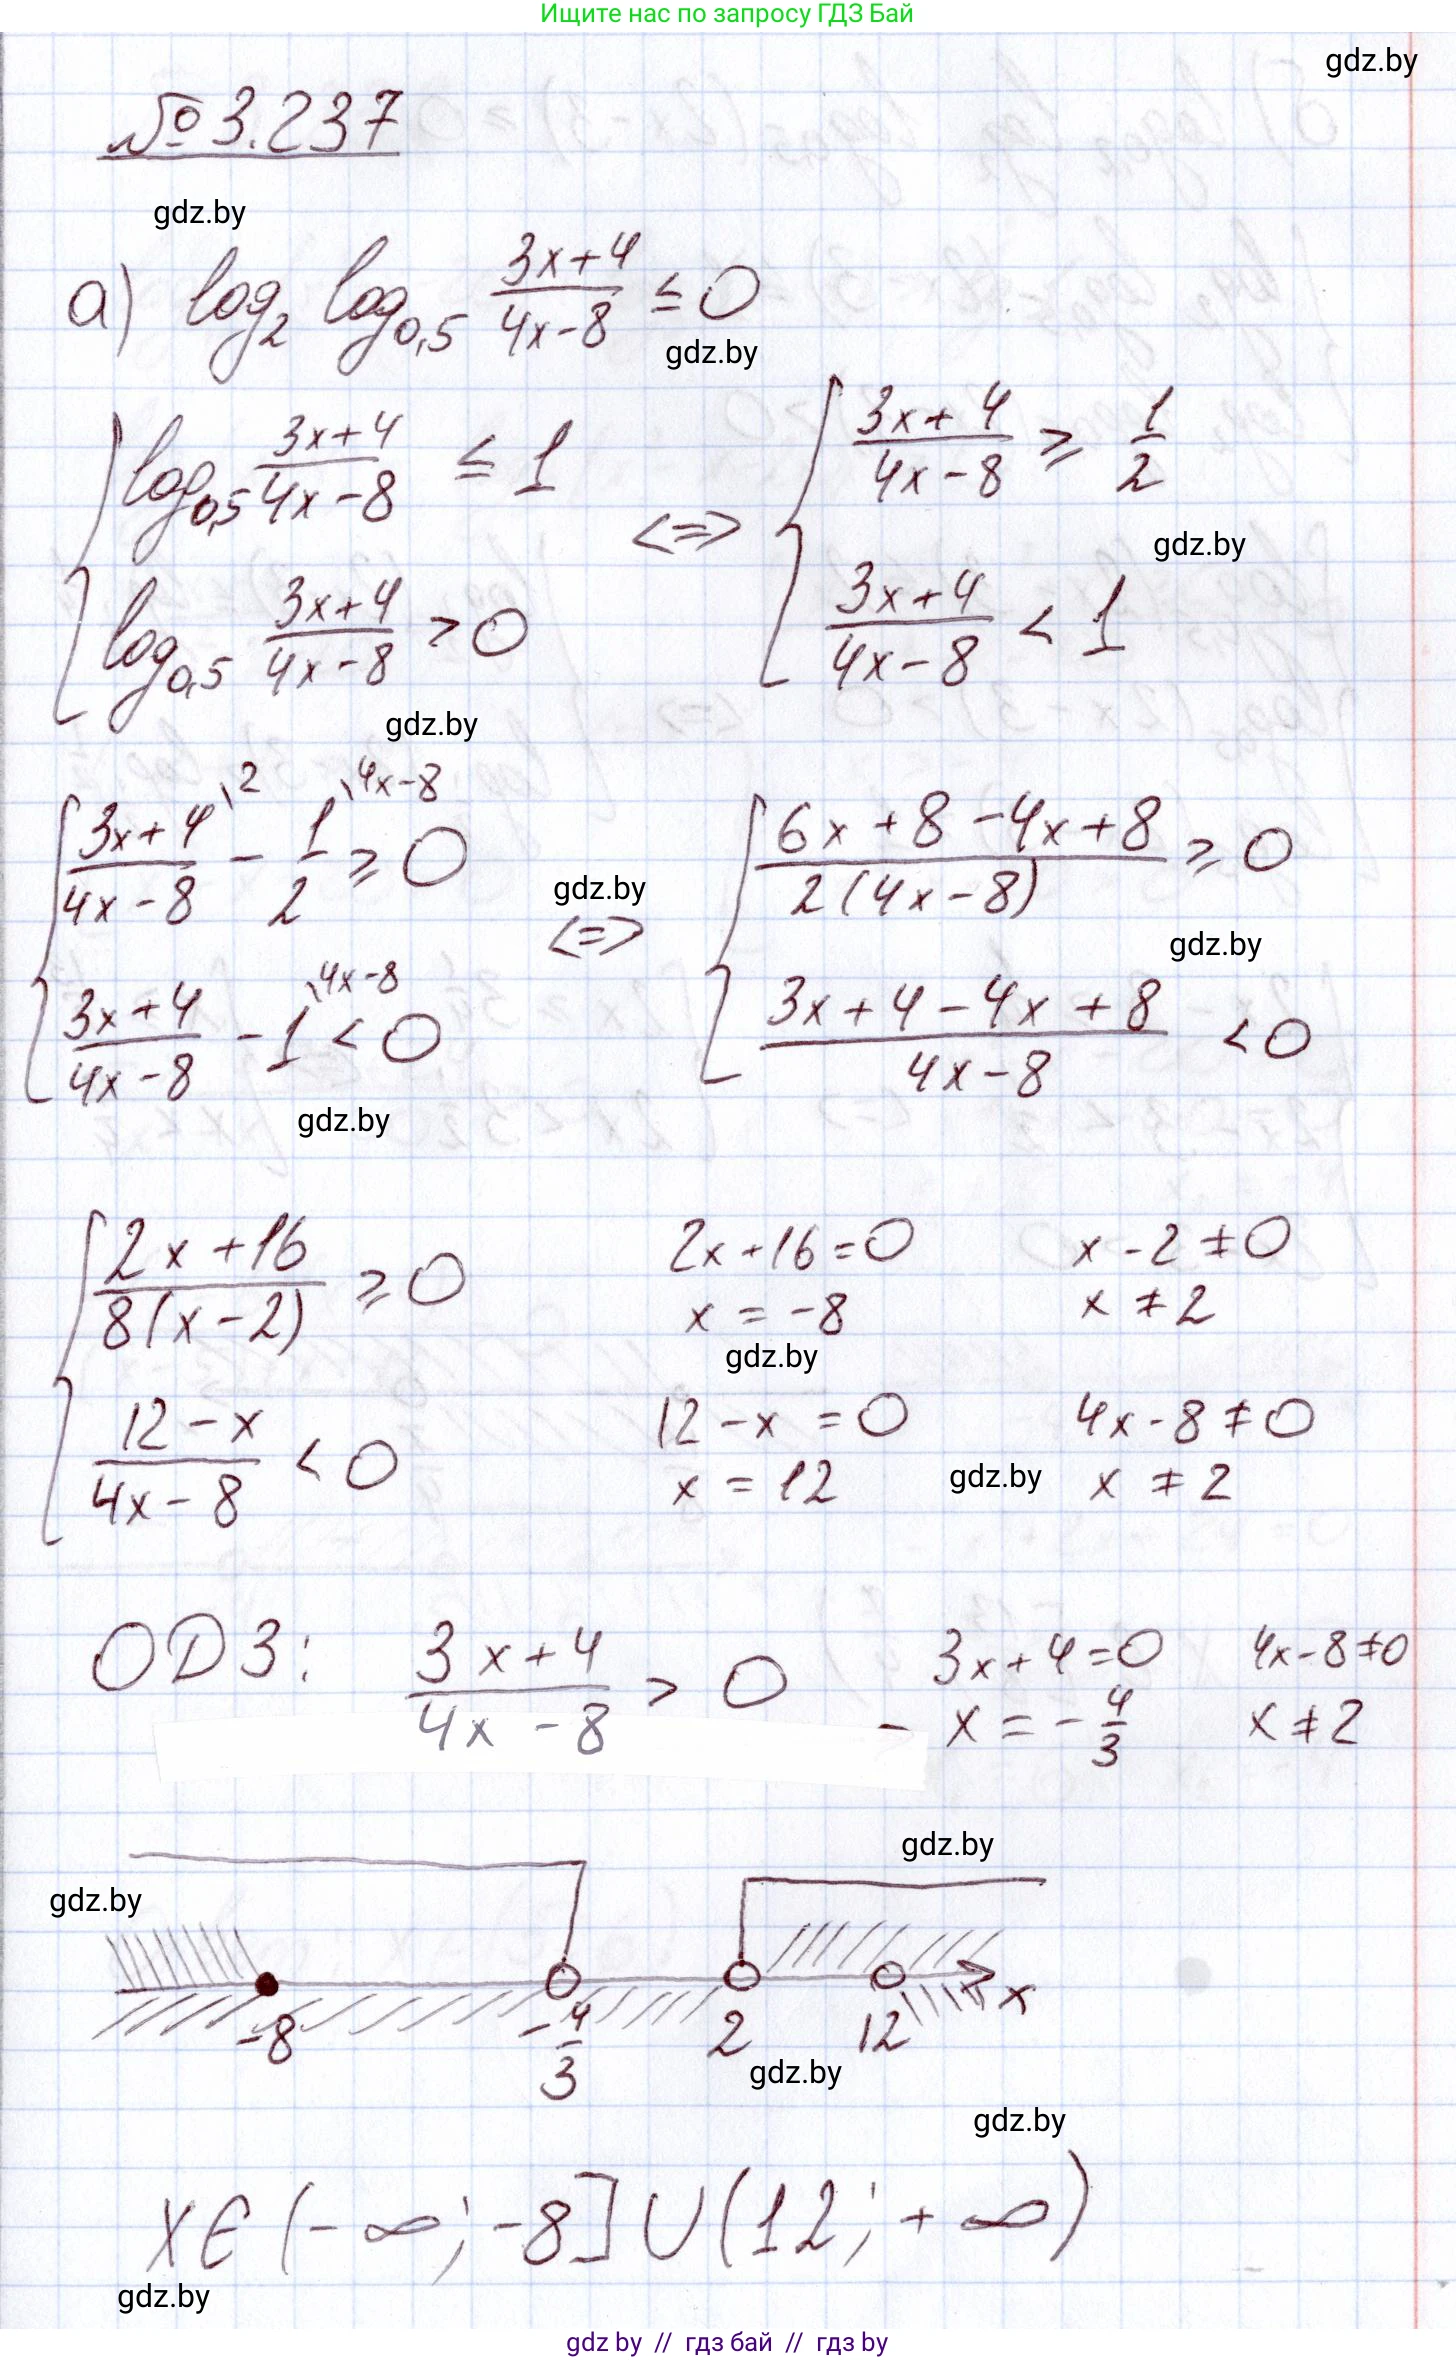 Ищите нас по запросу ГДЗ Бай
gdz.by
№ 3.237
gdz.by
а) log₂ log₀,₅ (3x+4)/(4x-8) ≤ 0
gdz.by
{ log₀,₅ (3x+4)/(4x-8) ≤ 1
log₀,₅ (3x+4)/(4x-8) > 0
<=> { (3x+4)/(4x-8) ≥ 1/2
(3x+4)/(4x-8) < 1
gdz.by
gdz.by
{ (3x+4)/(4x-8) \2 - 1/2 \4x-8 ≥ 0
(3x+4)/(4x-8) - 1 \4x-8 < 0
gdz.by
<=> { (6x+8-4x+8)/(2(4x-8)) ≥ 0
gdz.by
(3x+4-4x+8)/(4x-8) < 0
gdz.by
{ (2x+16)/(8(x-2)) ≥ 0
2x+16=0
x = -8
x-2≠0
x ≠ 2
gdz.by
(12-x)/(4x-8) < 0
12-x = 0
x = 12
gdz.by
4x-8≠0
x ≠ 2
ОДЗ: (3x+4)/(4x-8) > 0
3x+4=0
x = -4/3
4x-8≠0
x≠2
gdz.by
gdz.by
-8 -4/3 2 12 x
gdz.by
gdz.by
x∈(-∞;-8]∪(12;+∞)
gdz.by
gdz by // гдз бай // гдз by